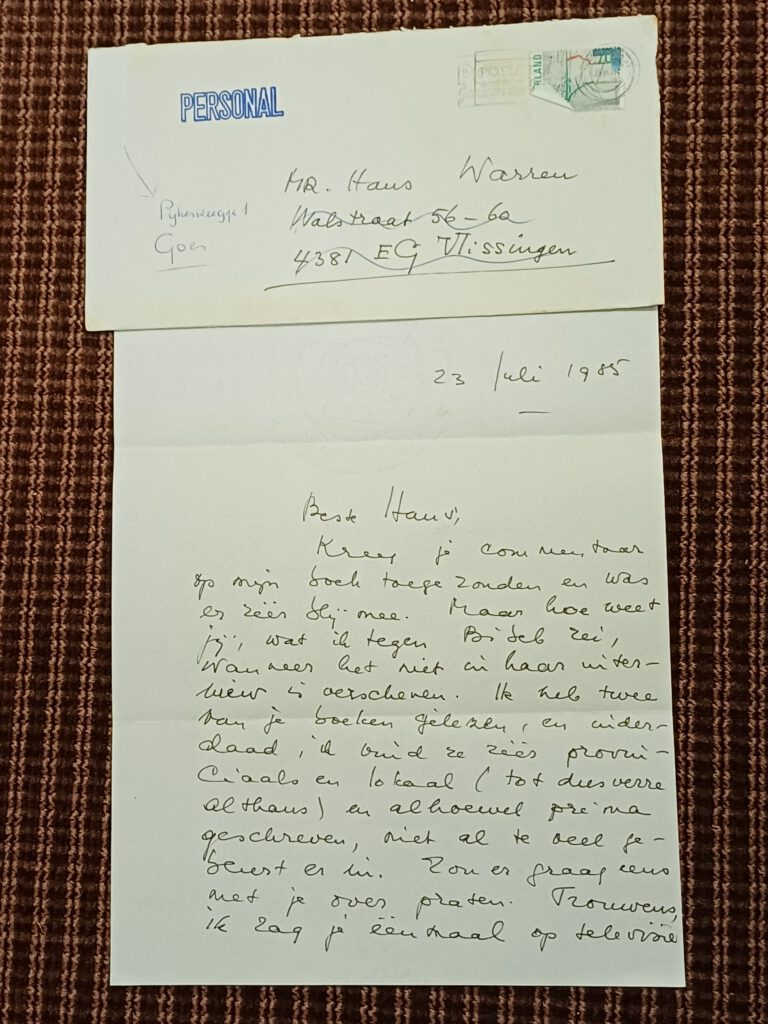 PERSONAL
RLAND
70
MR. Hans Warren
Walstraat 56-60
4381 EG Vlissingen
Goes
23 Juli 1985
Beste Hans,
Kreeg je commentaar
op mijn boek toegezonden en was
er zéér blij mee. Maar hoe weet
jij, wat ik tegen Bibeb zei,
wanneer het niet in haar inter-
view is verschenen. Ik heb twee
van je boeken gelezen, en inder-
daad, ik vind ze zéér provin-
ciaals en lokaal (tot dusverre
althans) en alhoewel prima
geschreven, niet al te veel ge-
beurt er in. Zou er graag eens
met je over praten. Trouwens,
ik zag je éénmaal op televisie